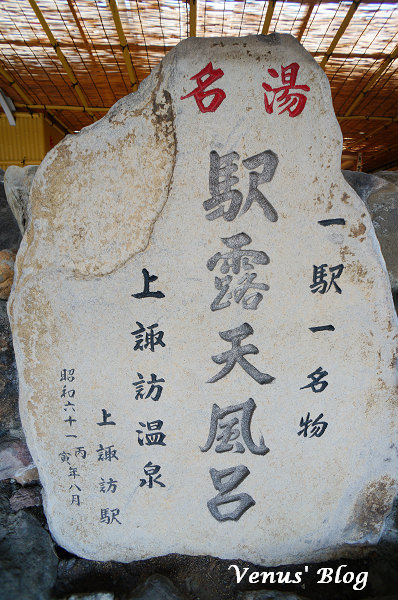 名湯
一駅一名物
駅露天風呂
上諏訪温泉
上諏訪駅
昭和六十一丙寅年八月
Venus' Blog